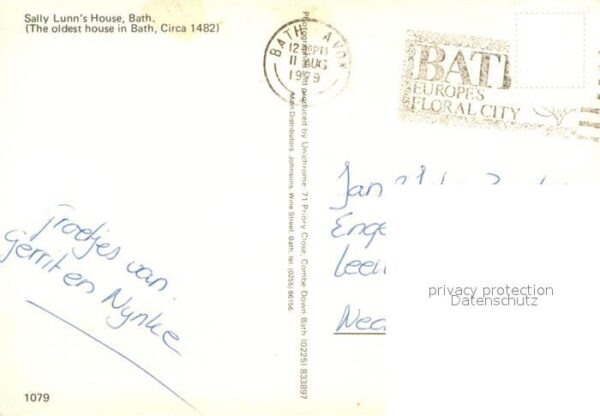 Sally Lunn's House, Bath.
(The oldest house in Bath, Circa 1482)
BATH AVON
11 AUG
1979
BATH
EUROPE'S
FLORAL CITY
Photographed and produced by Unichrome: 71 Priory Close, Combe Down Bath (0225) 833897
Main Distributors: Johnsons, Wine Street, Bath. tel. (0255) 66156
Groetjes van
Gerrit en Nynke
Jan
Enge
Leeu
Ned
privacy protection
Datenschutz
1079